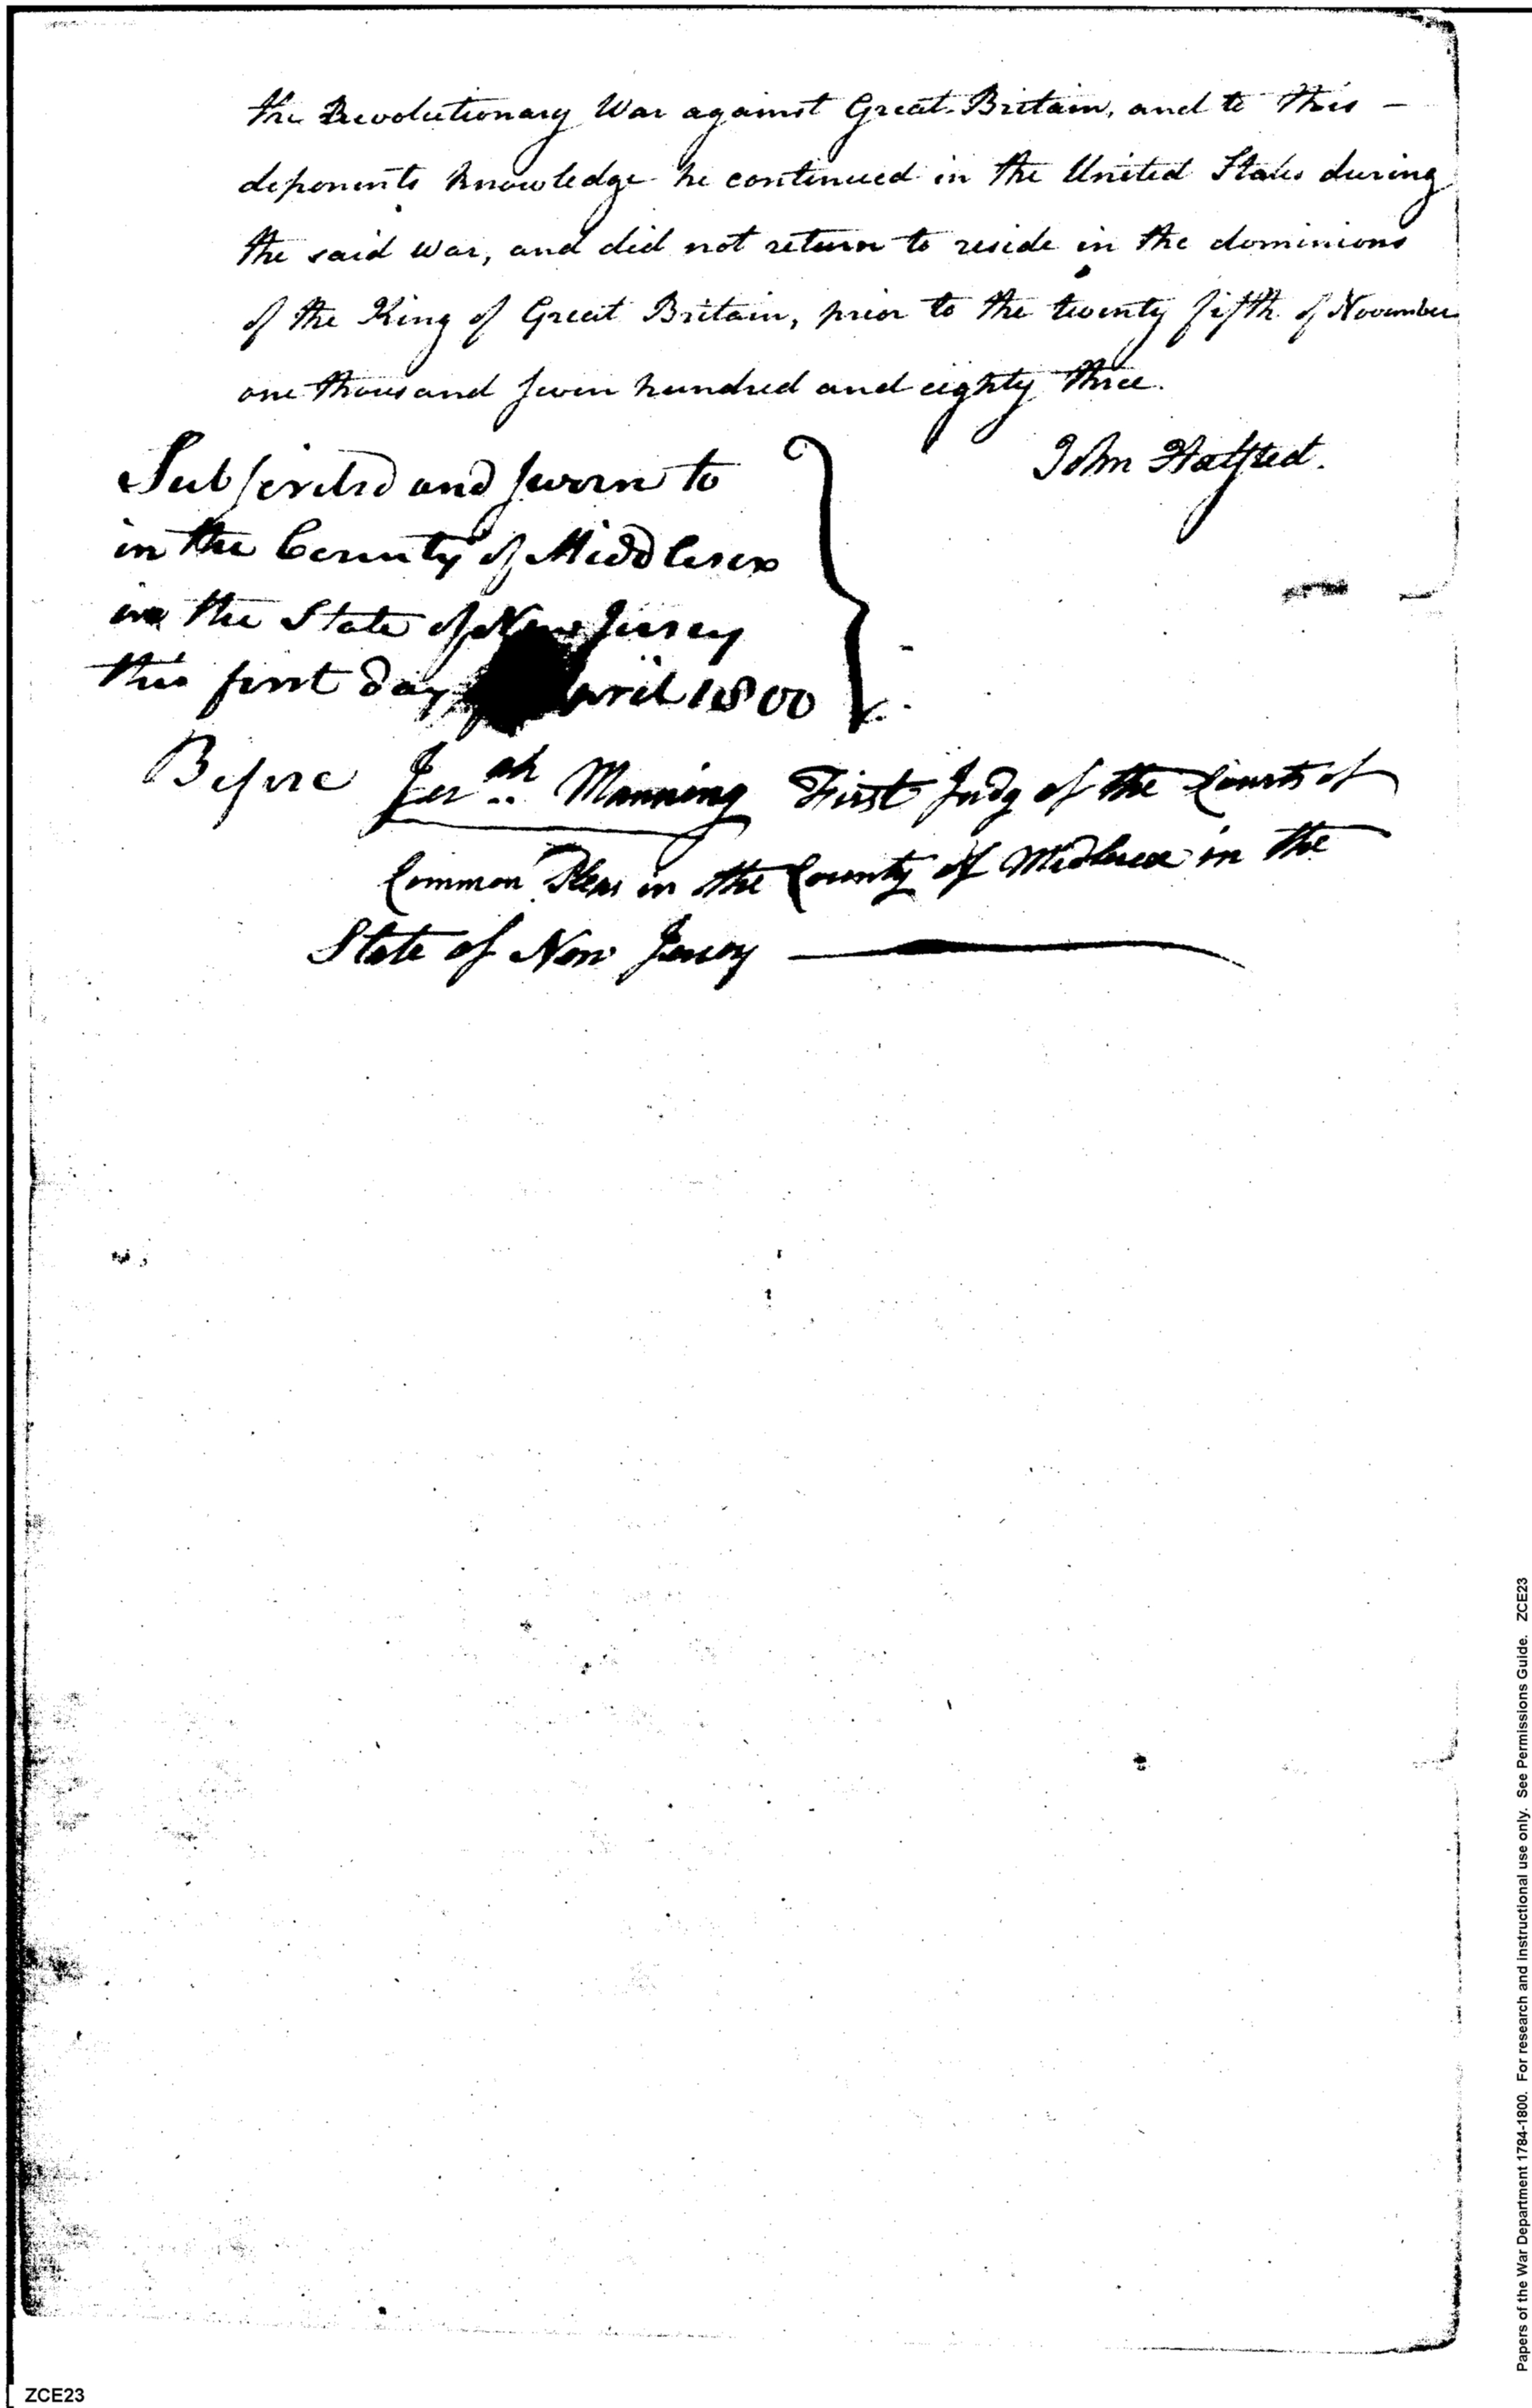 the Revolutionary War against Great Britain, and to this -
deponents knowledge he continued in the United States during
the said war, and did not return to reside in the dominions
of the King of Great Britain, prior to the twenty fifth of November
one thousand seven hundred and eighty three.
John Halsted.
Subscribed and sworn to
in the County of Middlesex
in the State of New Jersey
this first day April 1800
Before Jerah Manning First Judg of the Courts of
Common Pleas in the County of Midlesex in the
State of New Jersey
Papers of the War Department 1784-1800. For research and instructional use only. See Permissions Guide. ZCE23
ZCE23